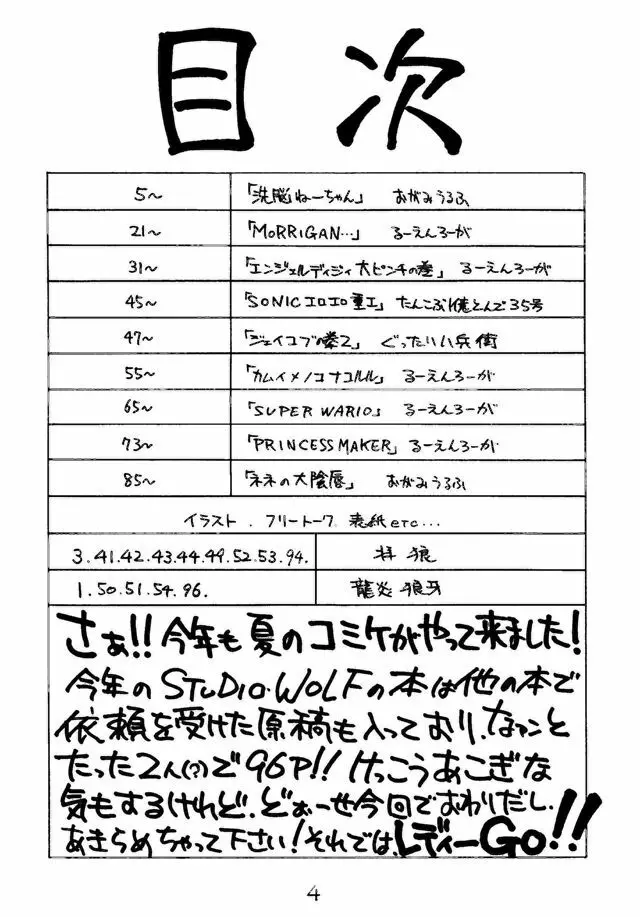 目次
5～ 「洗脳ねーちゃん」 おがみうるふ
21～ 「MORRIGAN…」 るーえんろーが
31～ 「エンジェルディジィ大ピンチの巻」 るーえんろーが
45～ 「SONICエロエロ重工」 たんこぶ1億とんで35号
47～ 「ジェイコブの拳2」 ぐったりハ兵衛
55～ 「カムイメノコナコルル」 るーえんろーが
65～ 「SUPER WARIO」 るーえんろーが
73～ 「PRINCESS MAKER」 るーえんろーが
85～ 「ネネの大陰唇」 おがみうるふ
イラスト．フリートーク 表紙etc…
3.41.42.43.44.49.52.53.94. 拝 狼
1.50.51.54.96. 龍炎 狼牙
さぁ!!今年も夏のコミケがやって来ました!
今年のSTUDIO・WOLFの本は他の本で
依頼を受けた原稿も入っており、なァンと
たった2人(?)で96P!!けっこうあこぎな
気もするけれど、どぉーせ今回でおわりだし、
あきらめちゃって下さい!それでは、レディーGo!!
4